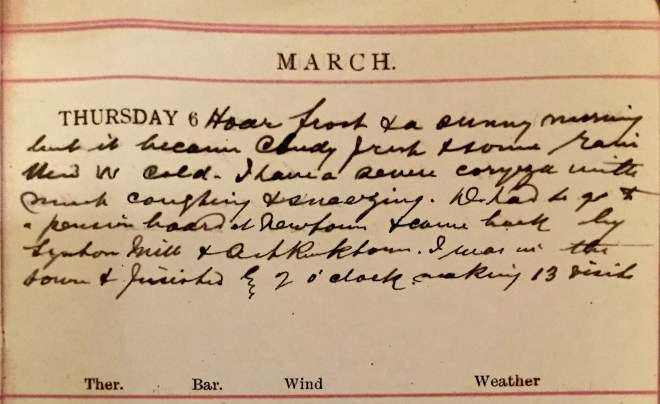 MARCH.
THURSDAY 6 Hoar frost & a sunny morning
but it became Cloudy fresh & some rain
Wind W cold. I have a severe coryza with
much coughing & sneezing. D. had to go to
a pension board at Newtown & came back by
Mill & I was in the
town & finished by 7 o'clock making 13 visits
Ther. Bar. Wind Weather